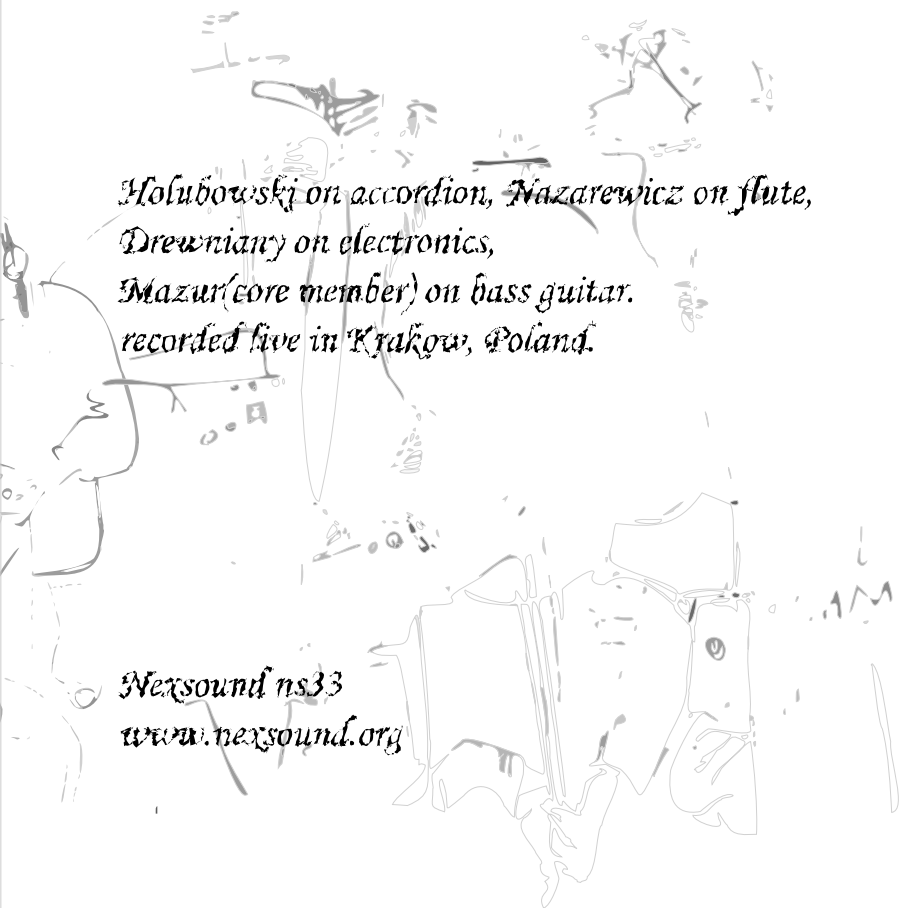 Holubowski on accordion, Nazarewicz on flute,
Drewniany on electronics,
Mazur(core member) on bass guitar.
recorded live in Krakow, Poland.
Nexsound ns33
www.nexsound.org